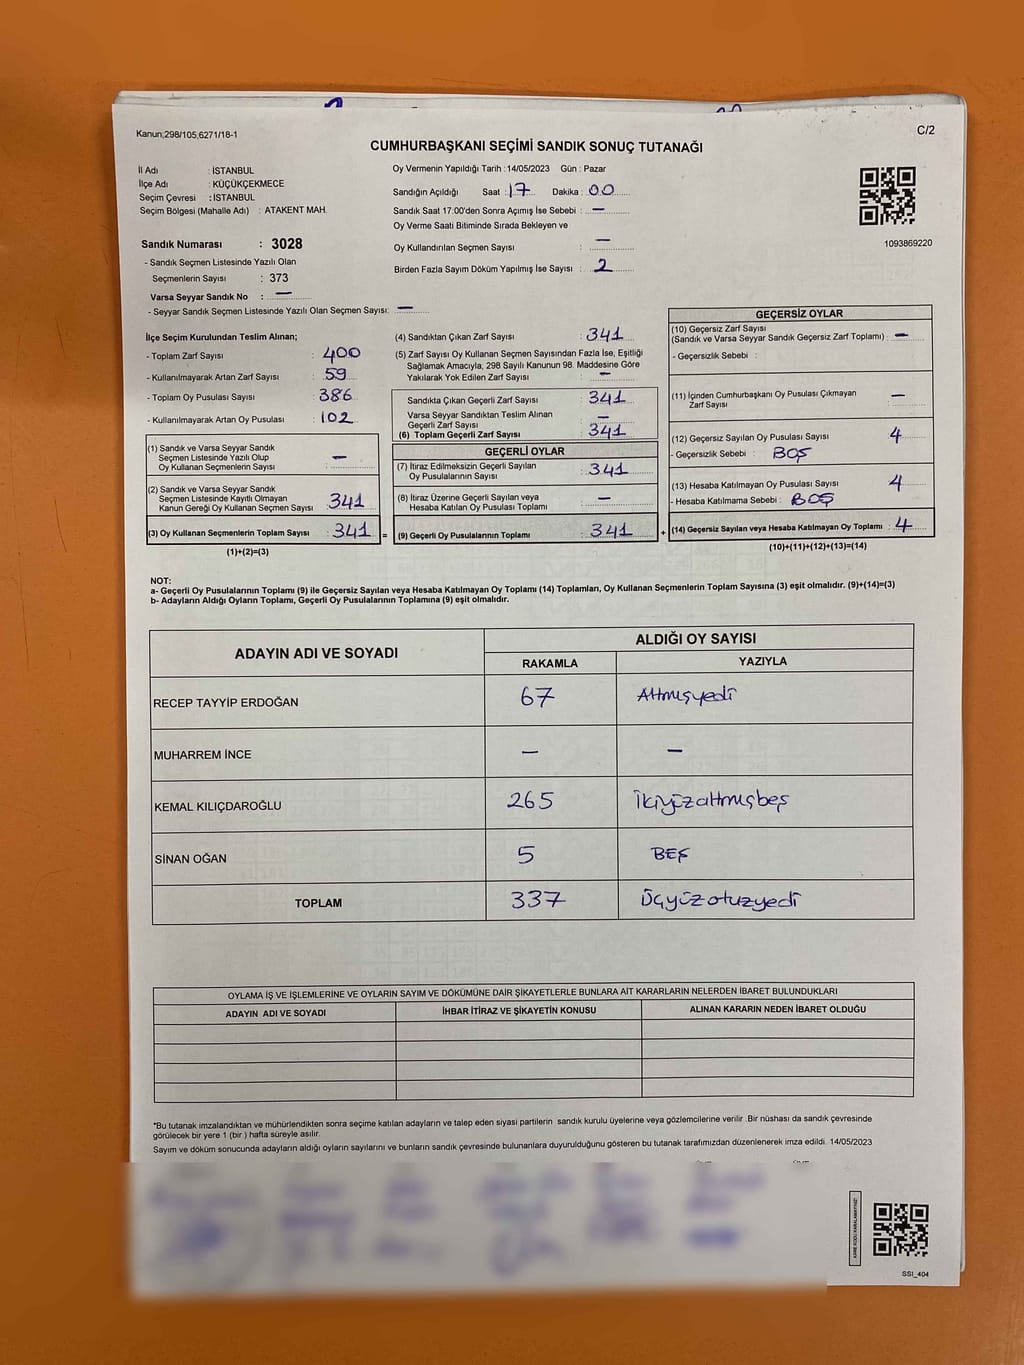 Kanun;298/105,6271/18-1
C/2
CUMHURBAŞKANI SEÇİMİ SANDIK SONUÇ TUTANAĞI
İl Adı : İSTANBUL
İlçe Adı : KÜÇÜKÇEKMECE
Seçim Çevresi : İSTANBUL
Seçim Bölgesi (Mahalle Adı) : ATAKENT MAH.
Sandık Numarası : 3028
- Sandık Seçmen Listesinde Yazılı Olan
Seçmenlerin Sayısı : 373
Varsa Seyyar Sandık No : —
- Seyyar Sandık Seçmen Listesinde Yazılı Olan Seçmen Sayısı: —
Oy Vermenin Yapıldığı Tarih : 14/05/2023 Gün : Pazar
Sandığın Açıldığı Saat : 17 Dakika : 00
Sandık Saat 17:00'den Sonra Açımış İse Sebebi : —
Oy Verme Saati Bitiminde Sırada Bekleyen ve
Oy Kullandırılan Seçmen Sayısı : —
Birden Fazla Sayım Döküm Yapılmış İse Sayısı : 2
1093869220
İlçe Seçim Kurulundan Teslim Alınan;
- Toplam Zarf Sayısı : 400
- Kullanılmayarak Artan Zarf Sayısı : 59
- Toplam Oy Pusulası Sayısı : 386
- Kullanılmayarak Artan Oy Pusulası : 102
(1) Sandık ve Varsa Seyyar Sandık
Seçmen Listesinde Yazılı Olup
Oy Kullanan Seçmenlerin Sayısı : —
(2) Sandık ve Varsa Seyyar Sandık
Seçmen Listesinde Kayıtlı Olmayan
Kanun Gereği Oy Kullanan Seçmen Sayısı : 341
(3) Oy Kullanan Seçmenlerin Toplam Sayısı : 341
(1)+(2)=(3)
=
(4) Sandıktan Çıkan Zarf Sayısı : 341
(5) Zarf Sayısı Oy Kullanan Seçmen Sayısından Fazla İse, Eşitliği
Sağlamak Amacıyla, 298 Sayılı Kanunun 98. Maddesine Göre
Yakılarak Yok Edilen Zarf Sayısı : —
Sandıkta Çıkan Geçerli Zarf Sayısı : 341
Varsa Seyyar Sandıktan Teslim Alınan
Geçerli Zarf Sayısı : —
(6) Toplam Geçerli Zarf Sayısı : 341
GEÇERLİ OYLAR
(7) İtiraz Edilmeksizin Geçerli Sayılan
Oy Pusulalarının Sayısı : 341
(8) İtiraz Üzerine Geçerli Sayılan veya
Hesaba Katılan Oy Pusulası Toplamı : —
(9) Geçerli Oy Pusulalarının Toplamı : 341
+
GEÇERSİZ OYLAR
(10) Geçersiz Zarf Sayısı
(Sandık ve Varsa Seyyar Sandık Geçersiz Zarf Toplamı) : —
- Geçersizlik Sebebi :
(11) İçinden Cumhurbaşkanı Oy Pusulası Çıkmayan
Zarf Sayısı : —
(12) Geçersiz Sayılan Oy Pusulası Sayısı : 4
- Geçersizlik Sebebi : BOŞ
(13) Hesaba Katılmayan Oy Pusulası Sayısı : 4
- Hesaba Katılmama Sebebi : BOŞ
(14) Geçersiz Sayılan veya Hesaba Katılmayan Oy Toplamı : 4
(10)+(11)+(12)+(13)=(14)
NOT:
a- Geçerli Oy Pusulalarının Toplamı (9) ile Geçersiz Sayılan veya Hesaba Katılmayan Oy Toplamı (14) Toplamları, Oy Kullanan Seçmenlerin Toplam Sayısına (3) eşit olmalıdır. (9)+(14)=(3)
b- Adayların Aldığı Oyların Toplamı, Geçerli Oy Pusulalarının Toplamına (9) eşit olmalıdır.
ADAYIN ADI VE SOYADI
ALDIĞI OY SAYISI
RAKAMLA YAZIYLA
RECEP TAYYİP ERDOĞAN 67 Altmışyedi
MUHARREM İNCE — —
KEMAL KILIÇDAROĞLU 265 İkiyüzaltmışbeş
SİNAN OĞAN 5 BEŞ
TOPLAM 337 Üçyüzotuzyedi
OYLAMA İŞ VE İŞLEMLERİNE VE OYLARIN SAYIM VE DÖKÜMÜNE DAİR ŞİKAYETLERLE BUNLARA AİT KARARLARIN NELERDEN İBARET BULUNDUKLARI
ADAYIN ADI VE SOYADI İHBAR İTİRAZ VE ŞİKAYETİN KONUSU ALINAN KARARIN NEDEN İBARET OLDUĞU
*Bu tutanak imzalandıktan ve mühürlendikten sonra seçime katılan adayların ve talep eden siyasi partilerin sandık kurulu üyelerine veya gözlemcilerine verilir .Bir nüshası da sandık çevresinde
görülecek bir yere 1 (bir ) hafta süreyle asılır.
Sayım ve döküm sonucunda adayların aldığı oyların sayılarını ve bunların sandık çevresinde bulunanlara duyurulduğunu gösteren bu tutanak tarafımızdan düzenlenerek imza edildi. 14/05/2023
KARE KODU KARALAMAYINIZ!
SSI_404